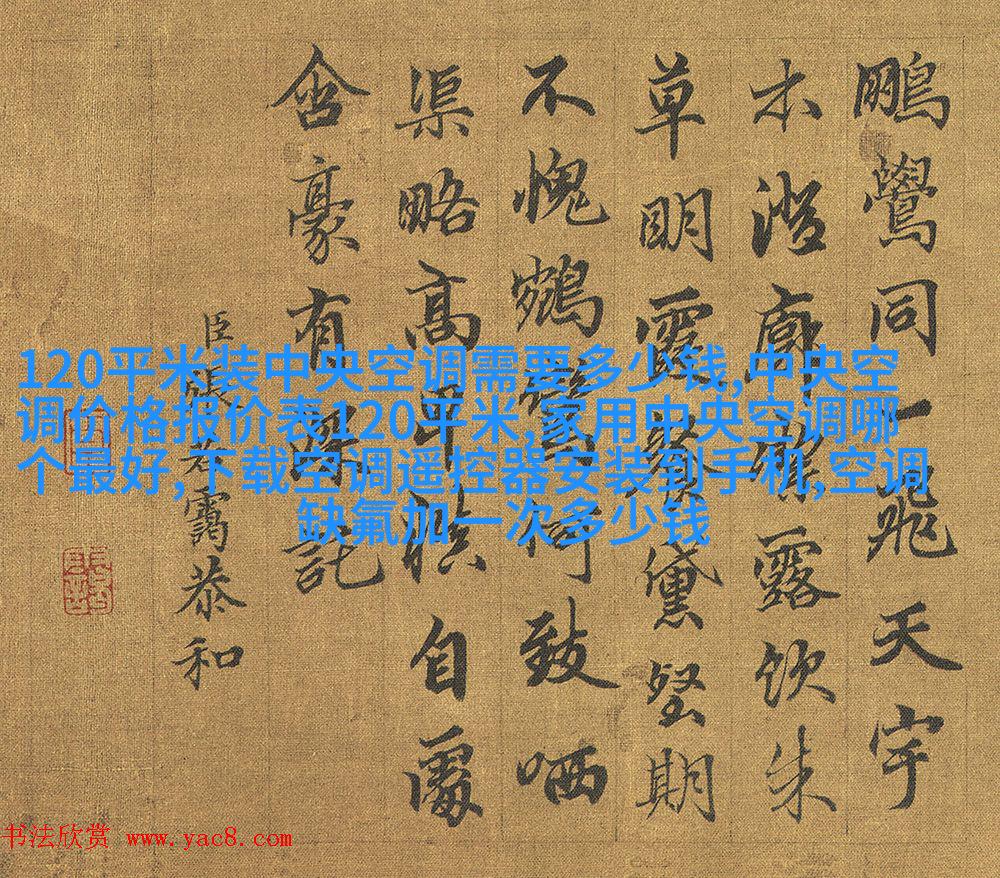 鵬鷽同一飛天宇
木澄露飲朱
草明霞餐黛壑期
不愧鶴何致哂
渠略高卑自
含豪有託
臣張若靄恭和
120平米装中央空调需要多少钱,中央空
调价格报价表120平米,家用中央空调哪
个最好,下载空调遥控器安装到手机,空调
缺氟加一次多少钱
书法欣赏 www.yac8.com